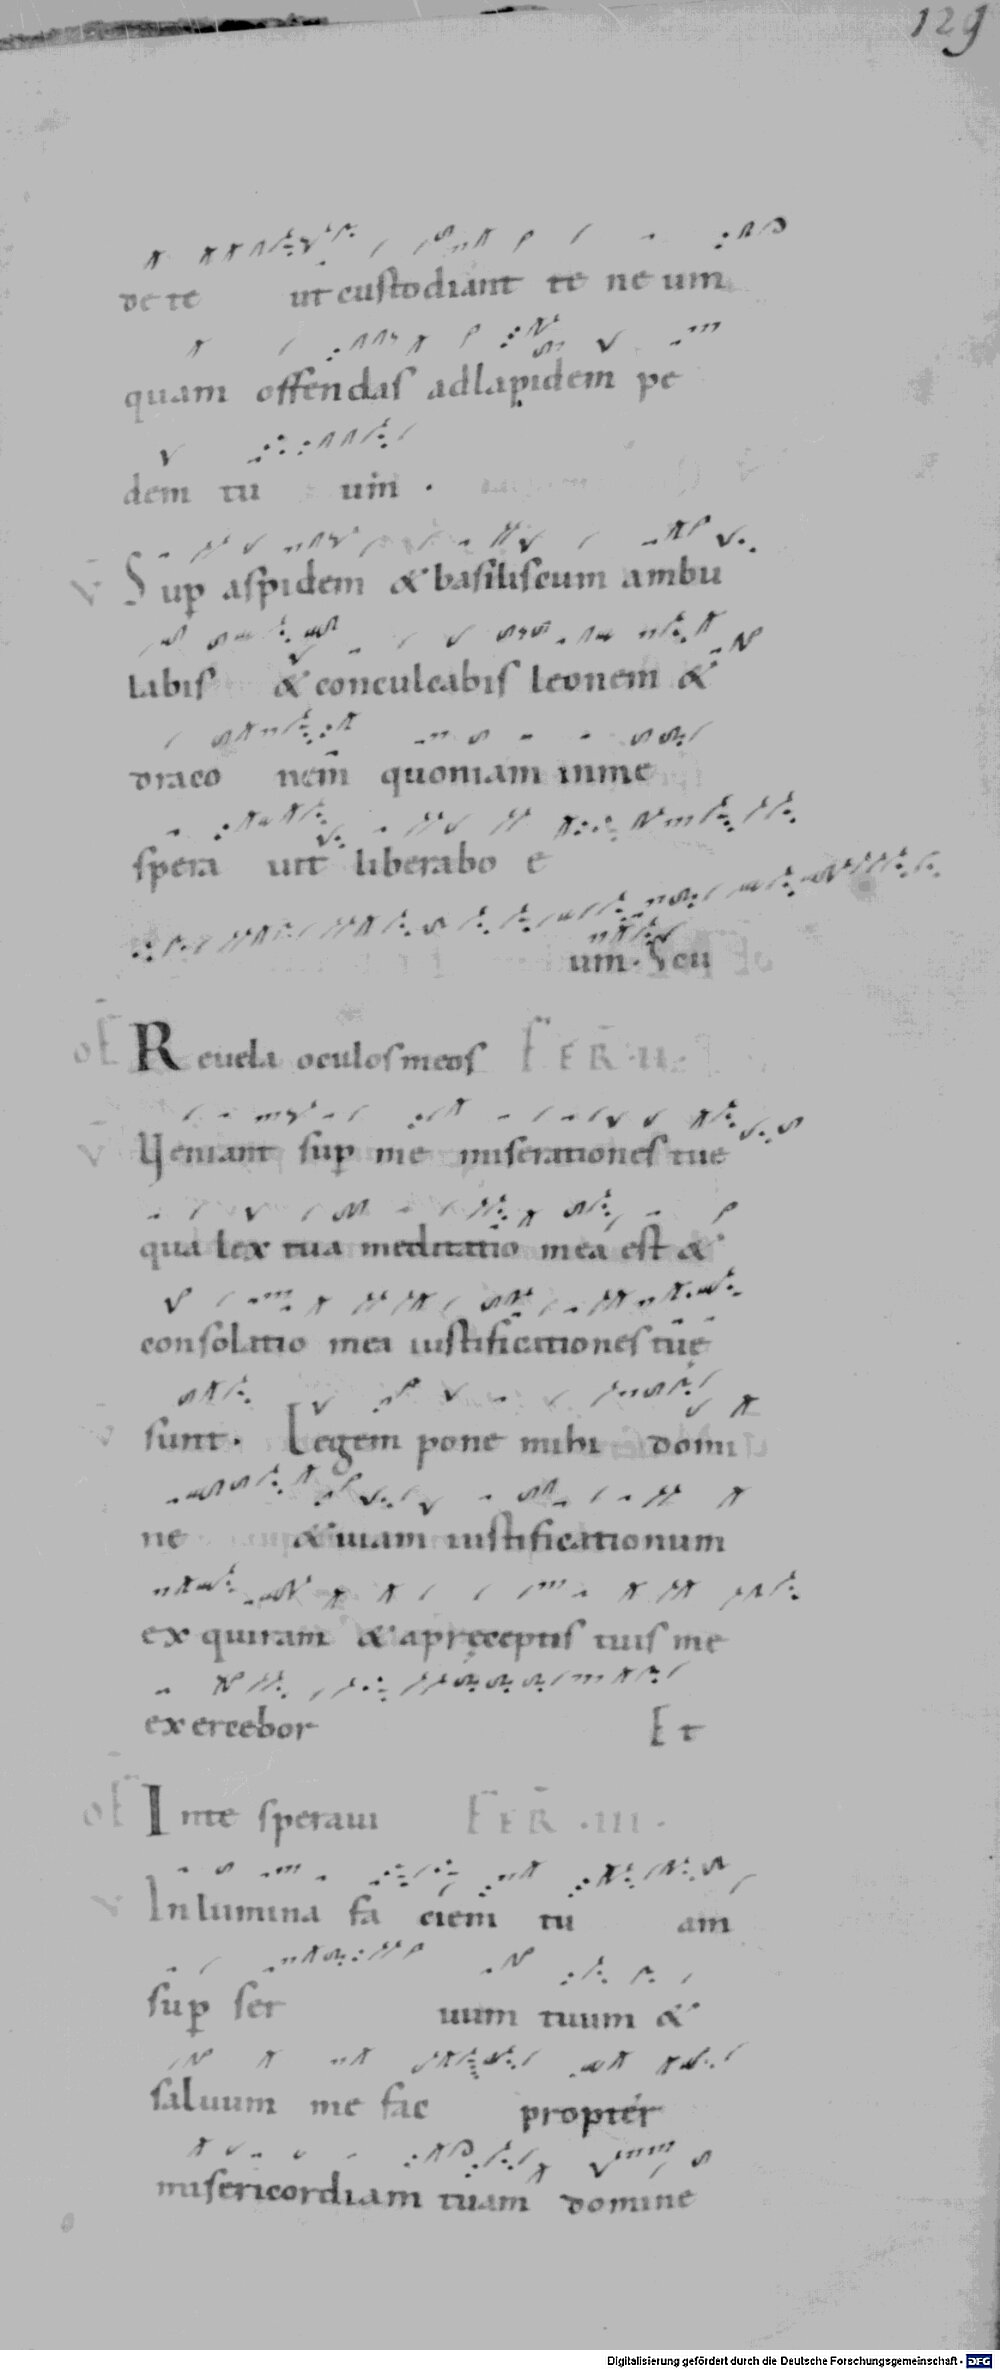 129
de te ut custodiant te ne um
quam offendas ad lapidem pe
dem tu um .
V̄ Sup aspidem & basiliscum ambu
labis & conculcabis leonem &
draco nem̄ quoniam in me
spera uit liberabo e
um. Scu
OF̄ Reuela oculos meos FER̄ .II.
V̄ Veniant sup me miserationes tue
quia lex tua meditatio mea est &
consolatio mea iustificationes tuę
sunt. V̄ Legem pone mihi domi
ne & uiam iustificationum
ex quiram & a pręceptis tuis me
exercebor Et
OF̄ In te speraui FER̄ .III.
V̄ Inlumina faciem tu am
sup ser uum tuum &
saluum me fac propter
misericordiam tuam domine
Digitalisierung gefördert durch die Deutsche Forschungsgemeinschaft - DFG